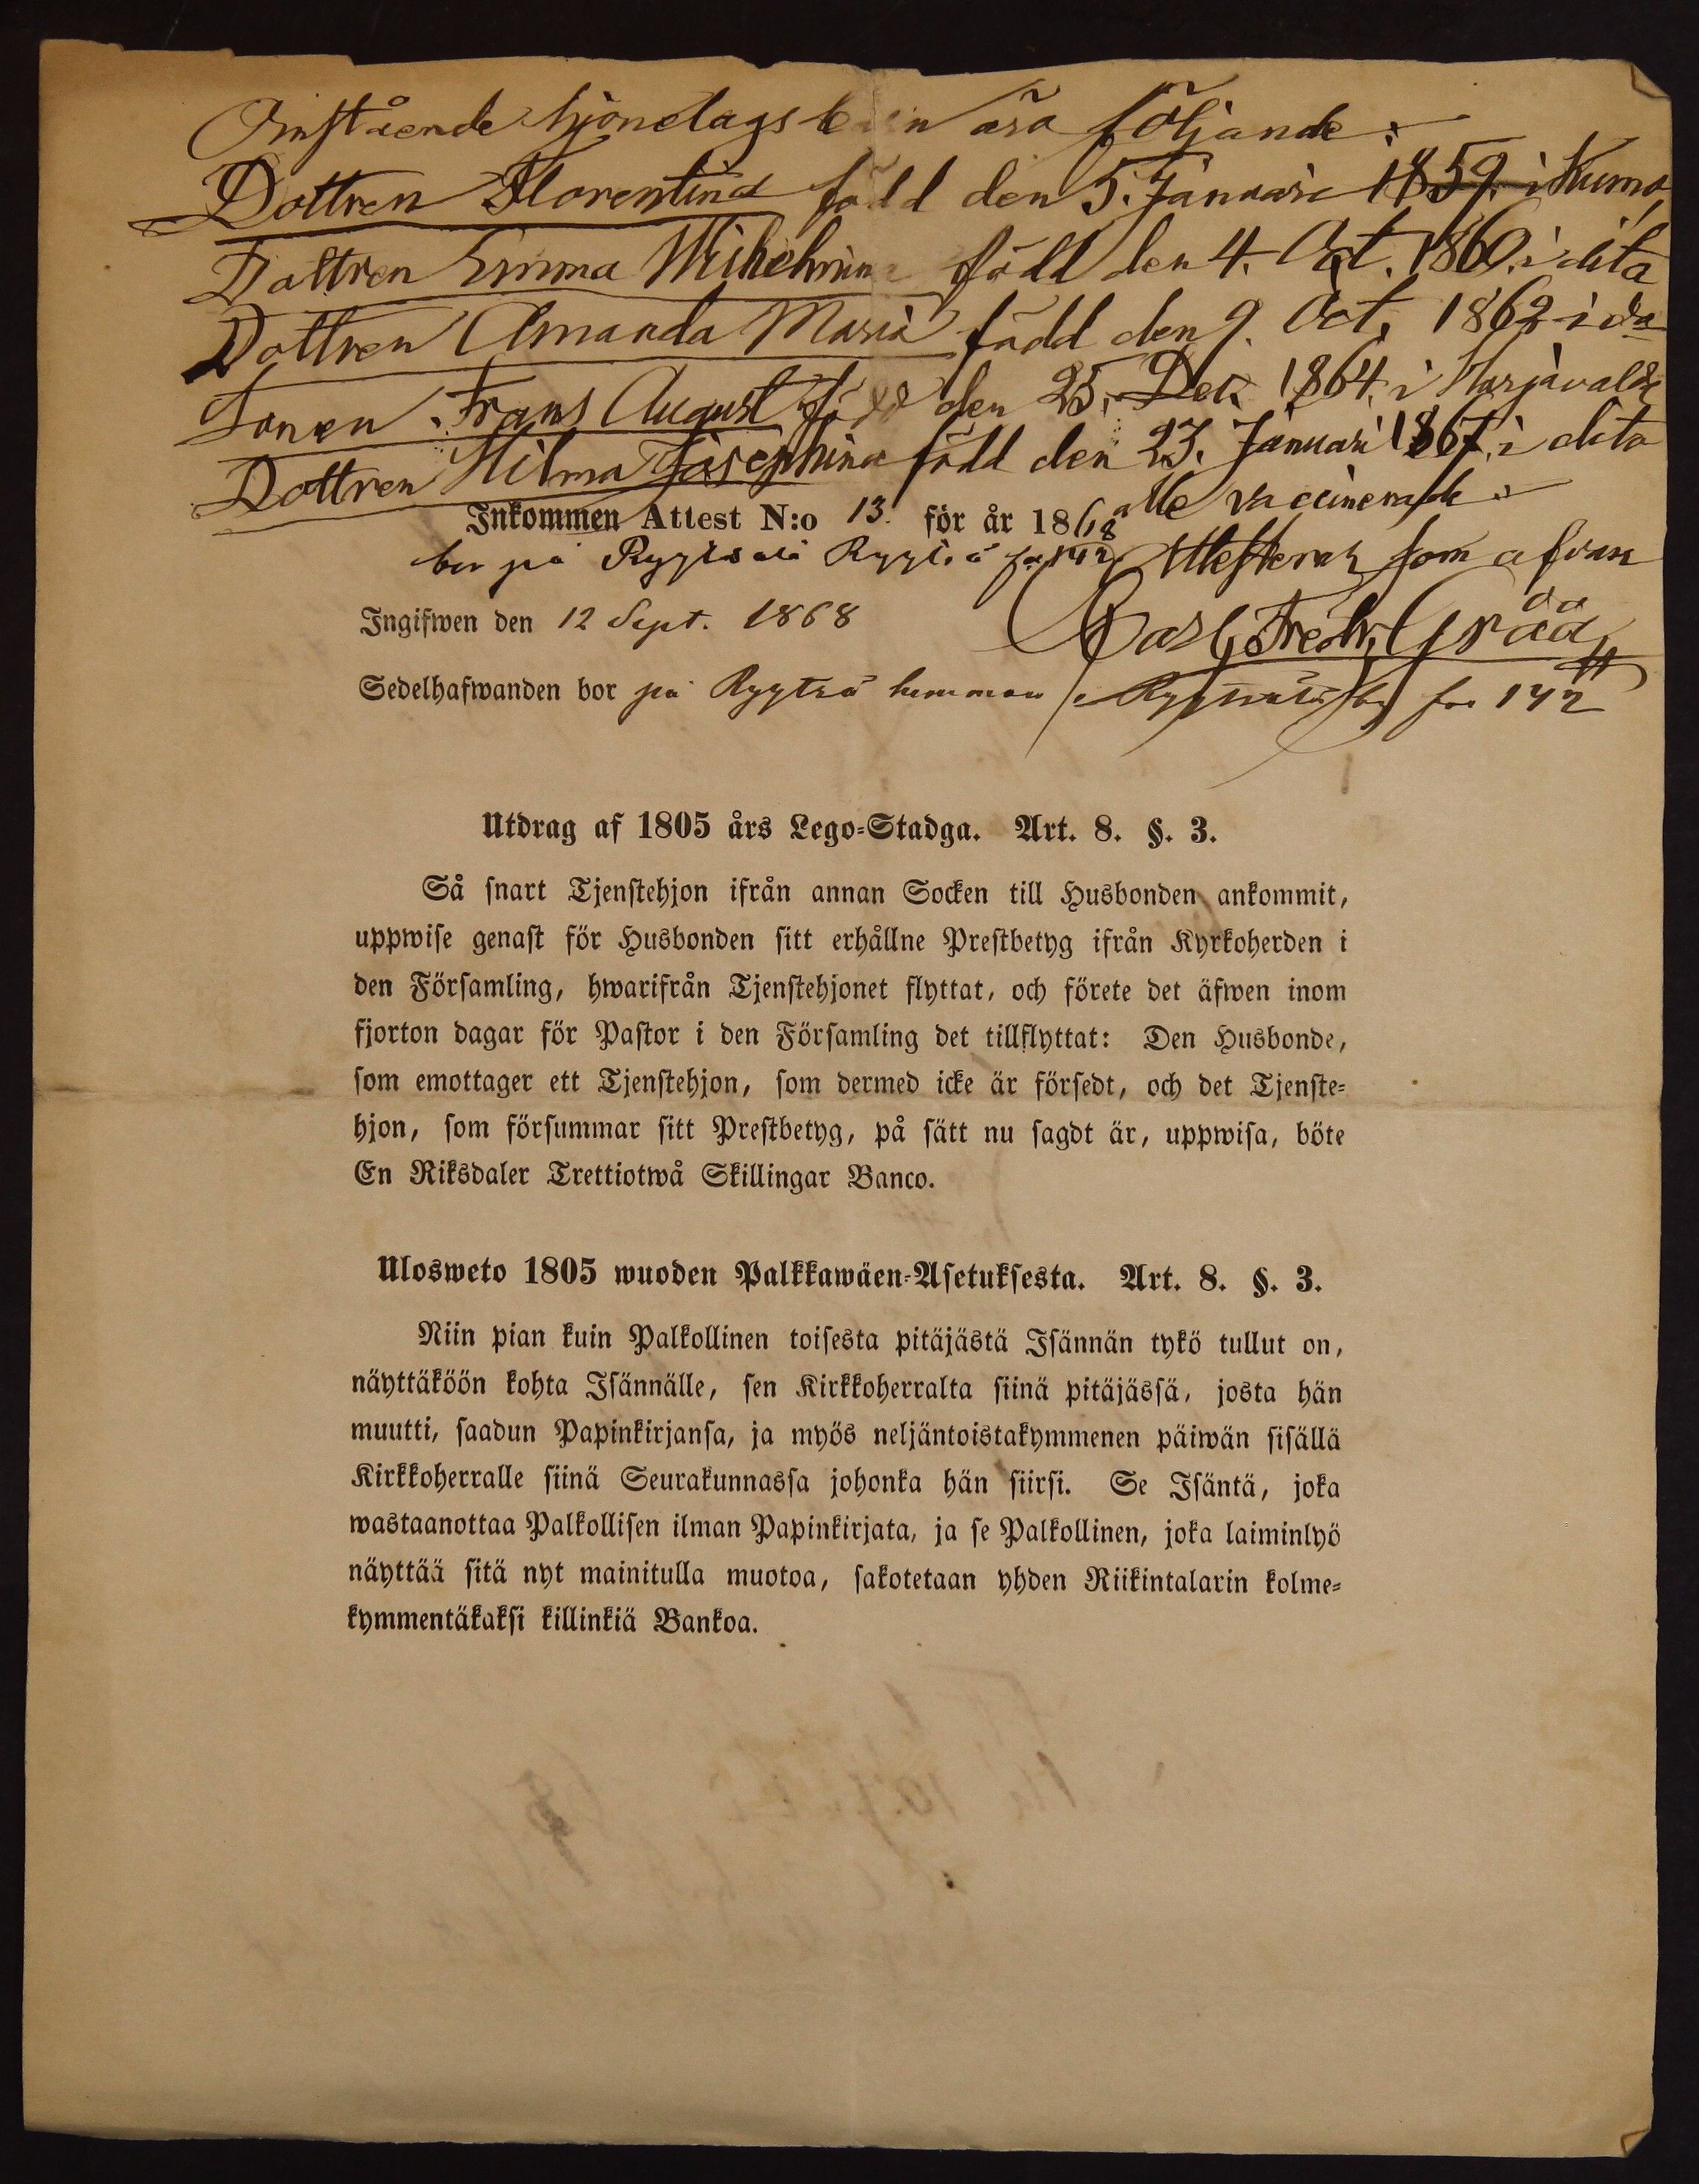 Omstående hjonelags barn äro följande:
Dottren Florentina född den 5. Januari 1859. i Kumo,
Dottren Emma Wilhelmina född den 4. Oct. 1860. i dito
Dottren Amanda Maria född den 9. Oct. 1862 i do
Sonen Frans August född den 25. Dec. 1864. i Harjavalda
Dottren Hilma Josephina född den 23. Januari 1867. i dito
alle vaccinerade.
Inkommen Attest N:o 13. för år 1868
bor på
Attesterar som ofvan
Ingifwen den 12 Sept. 1868
Carl Fredr. Grää
Sedelhafwanden bor på hemman
Utdrag af 1805 års Lego-Stadga. Art. 8. §. 3.
Så snart Tjenstehjon ifrån annan Socken till Husbonden ankommit,
uppwise genast för Husbonden sitt erhållne Prestbetyg ifrån Kyrkoherden i
den Församling, hwarifrån Tjenstehjonet flyttat, och förete det äfwen inom
fjorton dagar för Pastor i den Församling det tillflyttat: Den Husbonde,
som emottager ett Tjenstehjon, som dermed icke är försedt, och det Tjenste-
hjon, som försummar sitt Prestbetyg, på sätt nu sagdt är, uppwisa, böte
En Riksdaler Trettiotwå Skillingar Banco.
Ulosweto 1805 wuoden Palkkawäen-Asetuksesta. Art. 8. §. 3.
Niin pian kuin Palkollinen toisesta pitäjästä Isännän tykö tullut on,
näyttäköön kohta Isännälle, sen Kirkkoherralta siinä pitäjässä, josta hän
muutti, saadun Papinkirjansa, ja myös neljäntoistakymmenen päiwän sisällä
Kirkkoherralle siinä Seurakunnassa johonka hän siirsi. Se Isäntä, joka
wastaanottaa Palkollisen ilman Papinkirjata, ja se Palkollinen, joka laiminlyö
näyttää sitä nyt mainitulla muotoa, sakotetaan yhden Riikintalarin kolme-
kymmentäkaksi killinkiä Bankoa.